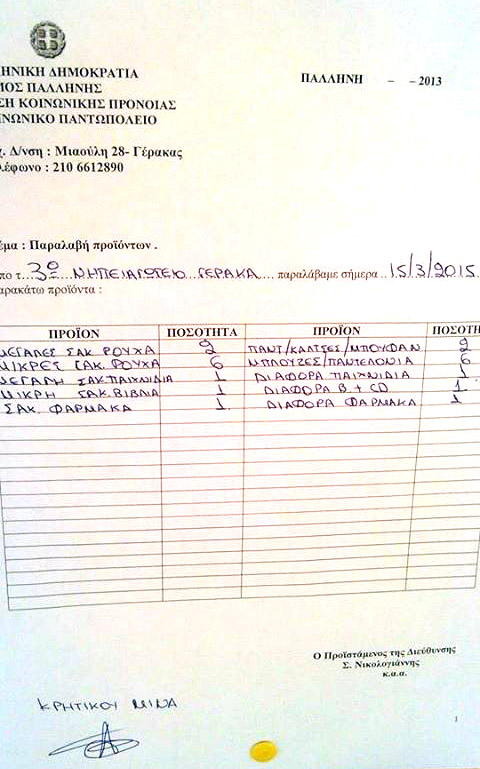 ΗΝΙΚΗ ΔΗΜΟΚΡΑΤΙΑ
ΜΟΣ ΠΑΛΛΗΝΗΣ
ΣΗ ΚΟΙΝΩΝΙΚΗΣ ΠΡΟΝΟΙΑΣ
ΙΝΩΝΙΚΟ ΠΑΝΤΩΠΟΛΕΙΟ
ΠΑΛΛΗΝΗ – – 2013
χ. Δ/νση : Μιαούλη 28- Γέρακας
λέφωνο : 210 6612890
έμα : Παραλαβή προϊόντων .
πο τ... 3ο ΝΗΠΕΙΑΓΩΓΕΙΟ ΓΕΡΑΚΑ .... παραλάβαμε σήμερα .. 15/3/2015
αρακάτω προϊόντα :
ΠΡΟΪΟΝ ΠΟΣΟΤΗΤΑ ΠΡΟΪΟΝ ΠΟΣΟΤΗ
ΜΕΓΑΛΕΣ ΣΑΚ. ΡΟΥΧΑ 2 ΠΑΝΤ/ΚΑΛΤΣΕΣ/ΜΠΟΥΦΑΝ 2
ΜΙΚΡΕΣ ΣΑΚ. ΡΟΥΧΑ 6 ΜΠΛΟΥΖΕΣ/ΠΑΝΤΕΛΟΝΙΑ 6
ΜΕΓΑΛΗ ΣΑΚ. ΠΑΙΧΝΙΔΙΑ 1 ΔΙΑΦΟΡΑ ΠΑΙΧΝΙΔΙΑ 1
ΜΙΚΡΗ ΣΑΚ. ΒΙΒΛΙΑ 1 ΔΙΑΦΟΡΑ Β. + CD 1
ΣΑΚ. ΦΑΡΜΑΚΑ 1 ΔΙΑΦΟΡΑ ΦΑΡΜΑΚΑ 1
Ο Προϊστάμενος της Διεύθυνσης
Σ. Νικολογιάννης
κ.α.α.
ΚΡΗΤΙΚΟΥ ΜΙΝΑ
1